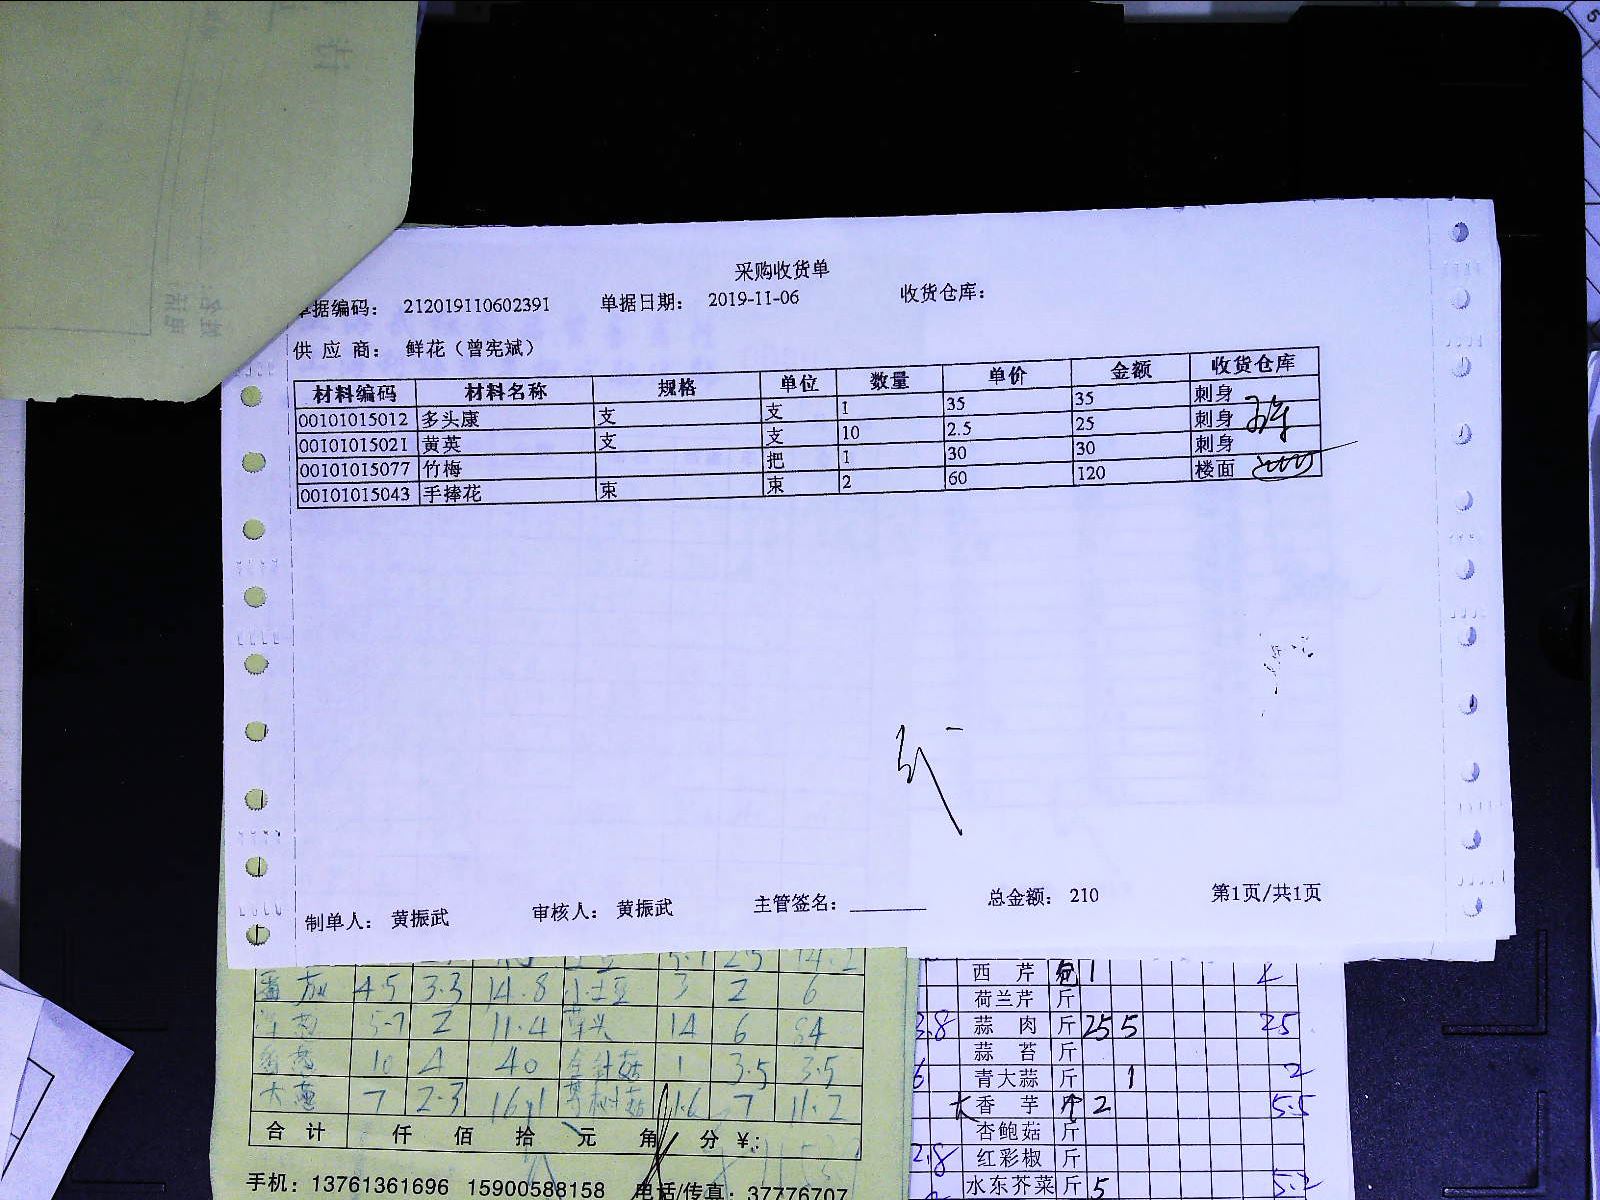 采购收货单
单据编码： 212019110602391 单据日期： 2019-11-06 收货仓库：
供 应 商： 鲜花（曾宪斌）
材料编码 材料名称 规格 单位 数量 单价 金额 收货仓库
00101015012 多头康 支 支 1 35 35 刺身
00101015021 黄英 支 支 10 2.5 25 刺身
00101015077 竹梅 把 1 30 30 刺身
00101015043 手捧花 束 束 2 60 120 楼面
制单人： 黄振武 审核人： 黄振武 主管签名： 总金额： 210 第1页/共1页
番茄 4.5 3.3 14.8 小土豆 3 2 6
5.7 2 11.4 草头 14 6 84
10 4 40 金针菇 1 3.5 3.5
大葱 7 2.3 16.1 茶树菇 1.6 7 11.2
合 计 仟 佰 拾 元 角 分 ￥:
手机：13761361696 15900588158 电话/传真：37776707
西 芹 1
荷兰芹 斤
2.8 蒜 肉 斤 25 5 25
蒜 苔 斤
6 青大蒜 斤 1 2
大 香 芋 个 2 5.5
杏鲍菇 斤
2.8 红彩椒 斤
水东芥菜 斤 5 5.2